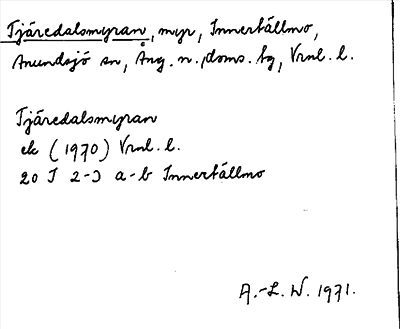 Tjäredalsmyran, myr, Innertällmo,
Anundsjö sn, Ång. n. doms. bg, Vrnl. l.
Tjäredalsmyran
ek (1970) Vrnl. l.
20 I 2-J a-b Innertällmo
A.-L. W. 1971.